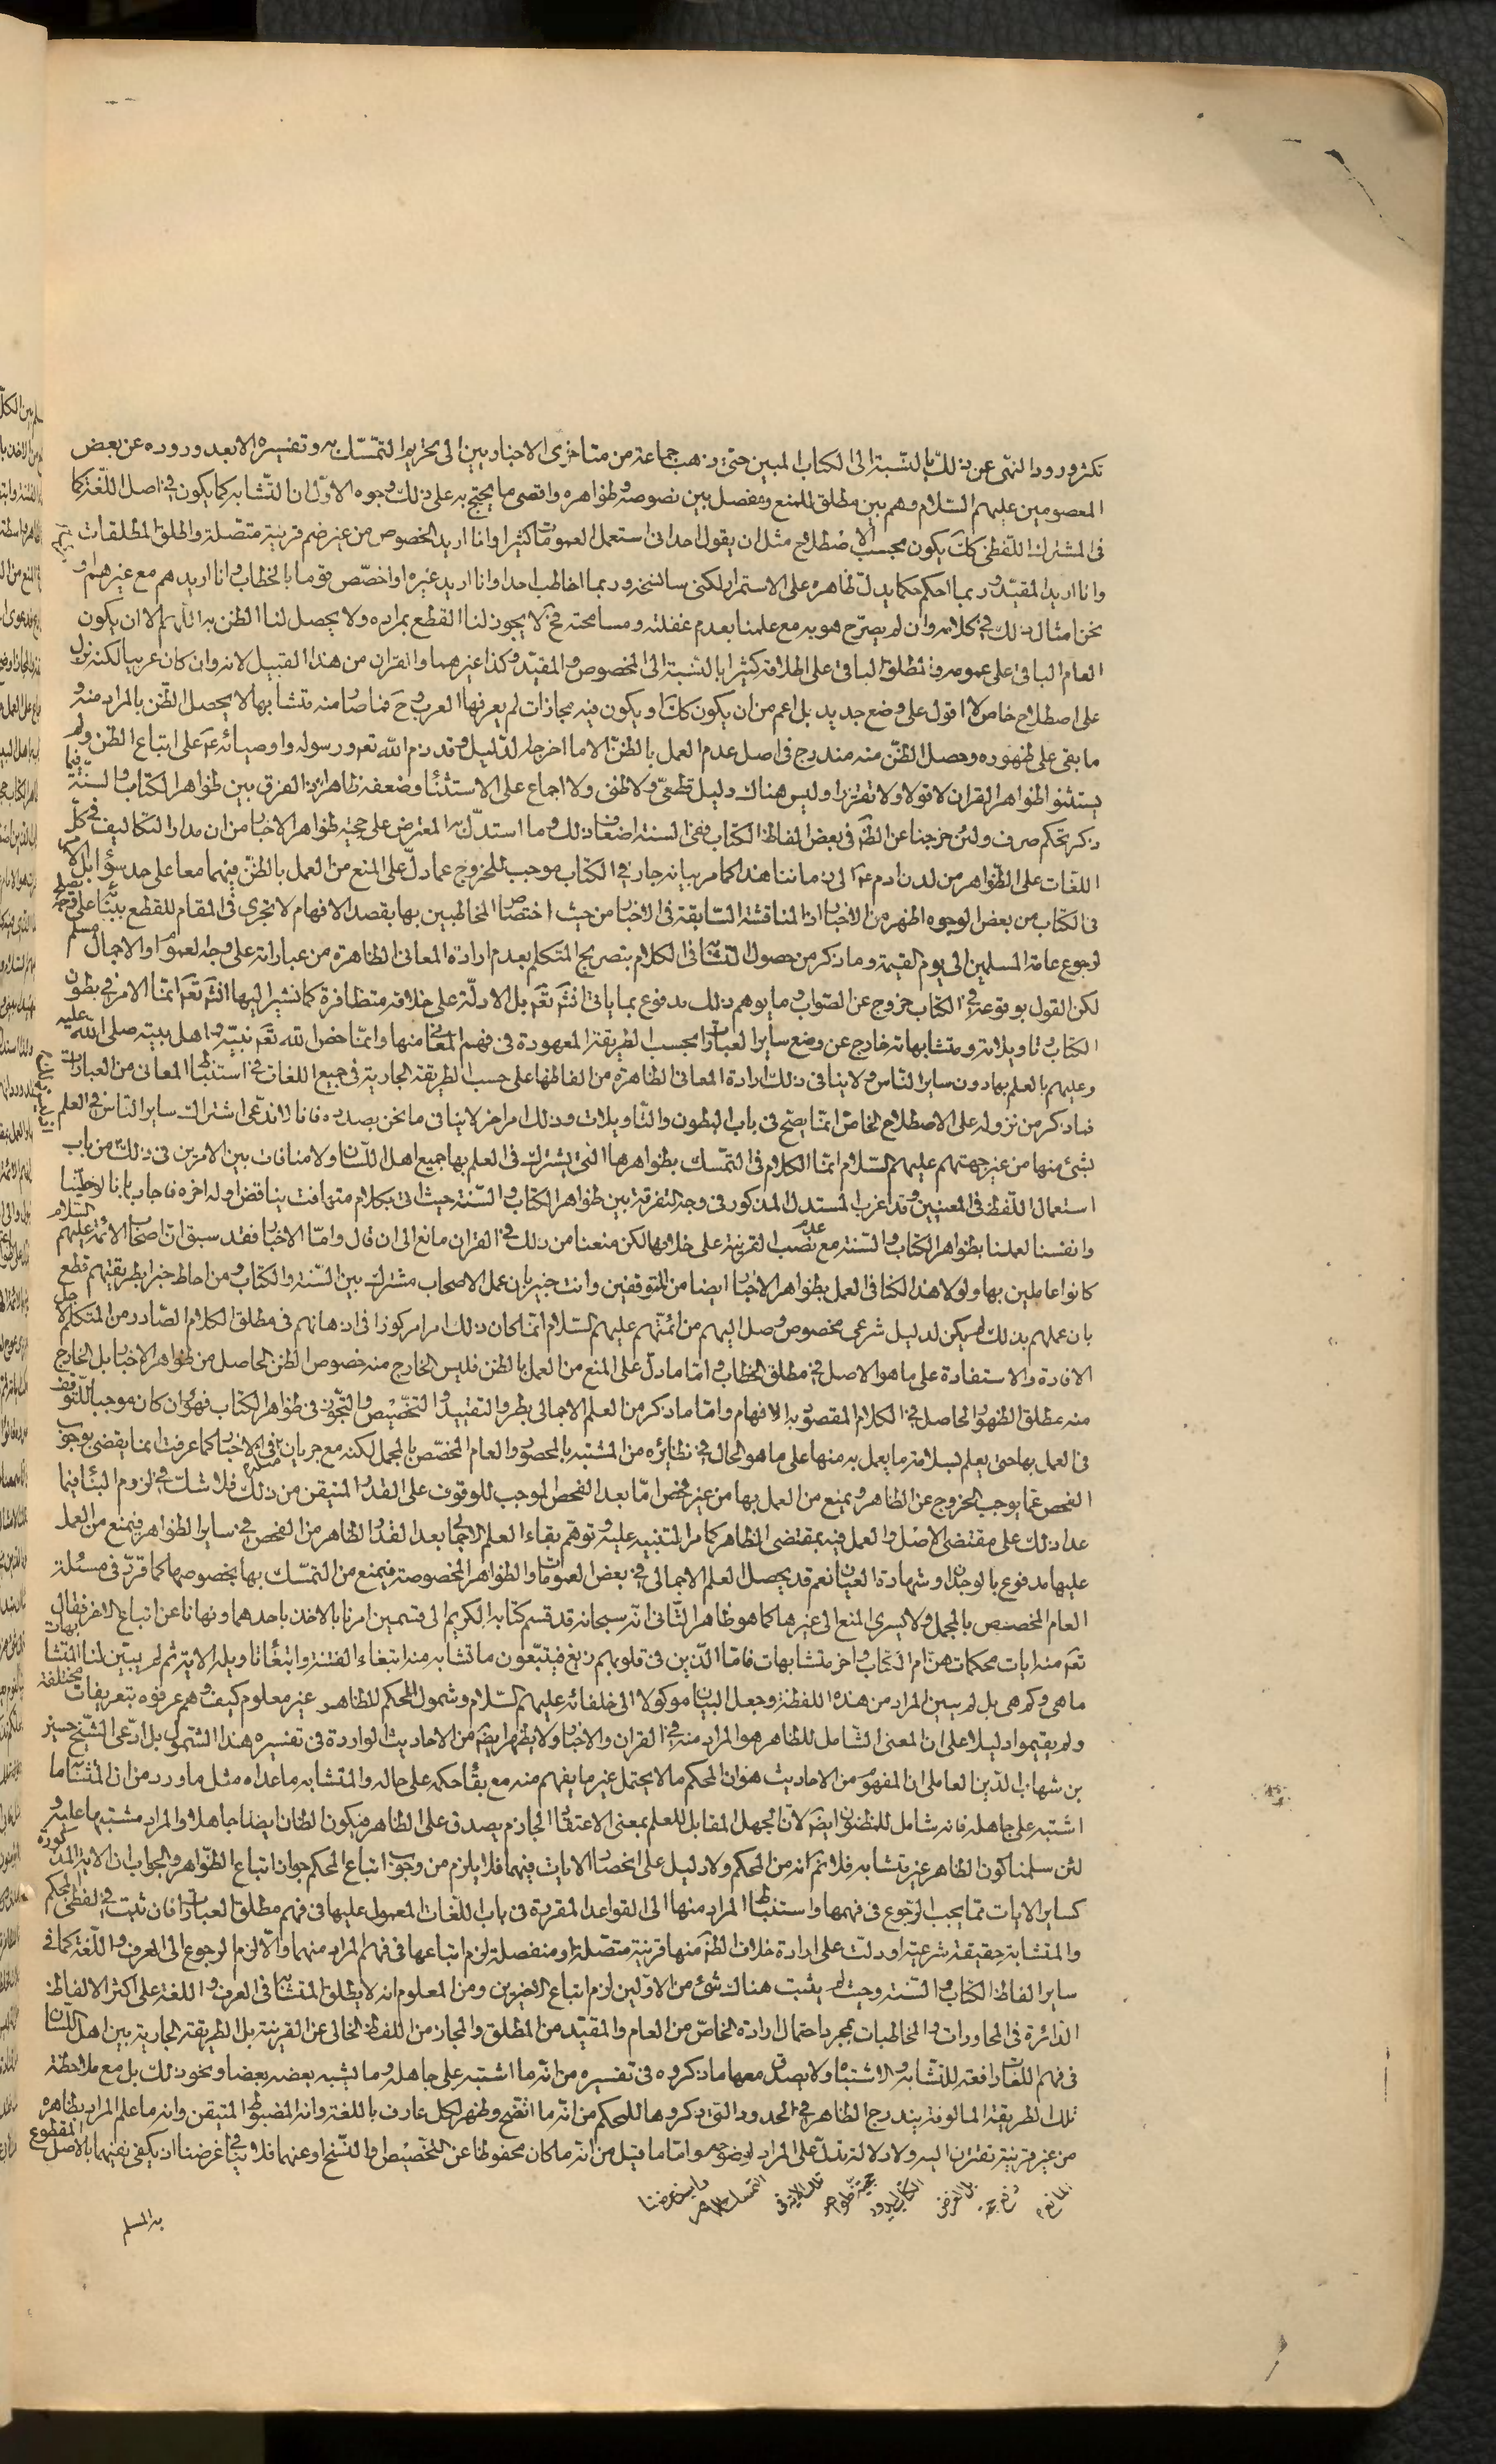 تكثر ورود النهى عن ذلك بالنسبة الى الكتاب المبين حتى ذهب جماعة من متاخرى الاخباريين الى تحريم التمسّك به وتفسيره الا بعد وروده عن بعض
المعصومين عليهم السلام وهم بين مطلق للمنع ومفصل بين نصوصه وظواهره واقصى ما يحتج به على ذلك وجوه الاوّل ان التشابه كما يكون فى اصل اللغة كما
فى المشترك اللفظى كك يكون بحسب الاصطلاح مثل ان يقول احد انى استعمل العمومات كثيرا وانا اريد الخصوص من غير ضم قرينة متصلة واطلق المطلقات
وانا اريد المقيد وربما احكم حكما يدل ظاهره على الاستمرار لكنى سانسخه وربما اخاطب احدا وانا اريد غيره او اخصّص قوما بالخطاب وانا اريدهم مع غيرهم او
نحن امثال ذلك فى كلامه وان لم يصرّح هو به مع علمنا بعدم غفلته ومسامحته فح لا يجوز لنا القطع بمراده ولا يحصل لنا الظن به اللهم الا ان يكون
العام الباقى على عمومه والمطلق الباقى على اطلاقه كثيرا بالنسبة الى المخصوص والمقيد وكذا غيرهما والقران من هذا القبيل لانه وان كان عربيا لكنه نزل
على اصطلاح خاص لا اقول على وضع جديد بل اعم من ان يكون كك او يكون فيه مجازات لم يعرفها العرب وح فما صار منه متشابها لا يحصل الظن بالمراد منه و
ما بقى على ظهوره وحصل الظن منه مندرج فى اصل عدم العمل بالظن الا ما اخرجه الدليل وقد ذم الله تعه ورسوله واوصيائه عم على اتباع الظن ولم
يستثنوا ظواهر القران لا قولا ولا تقريرا وليس هناك دليل قطعى ولا ظنى ولا اجماع على الاستثناء وضعفه ظاهر اذ الفرق بين ظواهر الكتاب والسنة فيما
ذكر تحكم صرف ولئن خرجنا عن الظم فى بعض الفاظ الكتاب ففى السنة اضعاف ذلك وما استدل به المعترض على حجية ظواهر الاخبار من ان مدار التكاليف فى كل
اللغات على الظواهر من لدن ادم عم الى زماننا هذا كما مر بيانه جار فى الكتاب موجب للخروج عما دل على المنع من العمل بالظن فيهما معا على حد سواء بل الامر
فى الكتاب من بعض الوجوه اظهر من الاخبار اذ المناقشة السابقة فى الاخبار من حيث اختصاص المخاطبين بها بقصد الافهام لا تجرى فى المقام للقطع ببناء على
لوجوع عامة المسلمين الى يوم القيمة وما ذكر من حصول التشابه فى الكلام بتصريح المتكلم بعدم ارادة المعانى الظاهرة من عباراته على وجه العموم او الاجمال مسلم
لكن القول بوقوعه فى الكتاب خروج عن الصواب وما يوهم ذلك مدفوع بما ياتى انشم تعم بل الادلة على خلافه متظافرة كما نشير اليها انشم تعم انما الامر فى بطون
الكتاب وتاويلاته ومتشابهاته خارج عن وضع ساير العبارات بحسب الطريقة المعهودة فى فهم المعانى منها وانما خص الله تعم نبيه واهل بيته صلى الله عليه
وعليهم بالعلم بها دون ساير الناس ولا ينافى ذلك ارادة المعانى الظاهرة من الفاظها على حسب الطريقة الجارية فى جميع اللغات فى استنباط المعانى من العبارات
فما ذكر من نزوله على الاصطلاح الخاص انما يصح فى باب البطون والتاويلات وذلك امر اخر لا ينافى ما نحن بصدده فانا لا ندعى اشتراك ساير الناس فى العلم
بشئ منها من غير جهتهم عليهم السلام انما الكلام فى التمسك بظواهرها التى يشترك فى العلم بها جميع اهل اللسان ولا منافات بين الامرين فى ذلك من باب
استعمال اللفظ فى المعنيين وقد اغرب المستدل المذكور فى وجه التفرقة بين ظواهر الكتاب والسنة حيث اتى بكلام متهافت يناقض اوله اخره فاجاب بانا لو خلينا
وانفسنا لعملنا بظواهر الكتاب والسنة مع عدم نصب القرينة على خلافها لكن منعنا من ذلك فى القران مانع الى ان قال واما الاخبار فقد سبق ان اصحاب الائمة عليهم السلام
كانوا عاملين بها ولولا هذا لكنا فى العمل بظواهر الاخبار ايضا من المتوقفين وانت خبير بان عمل الاصحاب مشترك بين السنة والكتاب ومن احاط خبرا بطريقتهم قطع
بان عملهم بذلك لم يكن لدليل شرعى مخصوص وصل اليهم من ائمتهم عليهم السلام انما كان ذلك امرا مركوزا فى اذهانهم فى مطلق الكلام الصادر من المتكلم لاجل
الافادة والاستفادة على ما هو الاصل فى مطلق الخطاب واما ما دل على المنع من العمل بالظن فليس الخارج منه خصوص الظن الحاصل من ظواهر الاخبار بل الخارج
منه مطلق الظهور الحاصل فى الكلام المقصود به الافهام واما ما ذكر من العلم الاجمالى بطرو التقييد والتخصيص والتجوز فى ظواهر الكتاب فهو وان كان موجبا للتوقف
فى العمل بها حتى يعلم لسلامة ما يعمل به منها على ما هو الحال فى نظائره من المشتبه بالمحصور والعام المخصّص بالمجمل لكنه مع جريان مثله فى الاخبار كما عرفت انما يقضى بوجوب
الفحص عما يوجب الخروج عن الظاهر ويمنع من العمل بها من غير فحص اما بعد الفحص الموجب للوقوف على القدر المتيقن من ذلك فلا شك فى لزوم البناء فيما
عدا ذلك على مقتضى الاصل والعمل فيه بمقتضى الظاهر كما مر التنبيه عليه وتوهم بقاء العلم الاجمالى بعد القدر الظاهر من الفحص فى ساير الظواهر فيمنع من العمل
عليها مدفوع بالوجدان وشهادة العيان نعم قد يحصل العلم الاجمالى فى بعض العمومات والظواهر المخصوصة فيمنع من التمسك بها بخصوصها كما قرر فى مسئلة
العام المخصص بالمجمل ولا يسرى المنع الى غيرها كما هو ظاهر الثانى انه سبحانه قد قسم كتابه الكريم الى قسمين امرنا بالاخذ باحدهما ونهانا عن اتباع الاخر فقال
تعم منه ايات محكمات هن ام الكتاب واخر متشابهات فاما الذين فى قلوبهم زيغ فيتبعون ما تشابه منه ابتغاء الفتنة وابتغاء تاويله الاية ثم لم يبين لنا المتشابهات
ما هى وكم هى بل لم يبين المراد من هذه اللفظة وجعل البيان موكولا الى خلفائه عليهم السلام وشمول المحكم للظاهر غير معلوم كيف وهم عرفوه بتعريفات مختلفة
ولم يقيموا دليلا على ان المعنى الشامل للظاهر هو المراد منه فى القران والاخبار ولا يظهر ايضم من الاحاديث الواردة فى تفسيره هذا الشمول بل ادعى الشيخ حسين
بن شهاب الدين العاملى ان المفهوم من الاحاديث هو ان المحكم ما لا يحتمل غير ما يفهم منه مع بقاء حكمه على حاله والمتشابه ما عداه مثل ما ورد من ان المتشابه ما
اشتبه على جاهله فانه شامل للمظنون ايضم لان الجهل المقابل للعلم بمعنى الاعتقاد الجازم يصدق على الظاهر فيكون الظان ايضا جاهلا والمراد مشتبها عليه و
لئن سلمنا كون الظاهر غير متشابه فلا نم انه من المحكم ولا دليل على انحصار الايات فيهما فلا يلزم من وجوب اتباع المحكم جواز اتباع الظواهر والجواب ان الاية المذكورة
كساير الايات مما يجب الرجوع فى فهمها واستنباط المراد منها الى القواعد المقررة فى باب اللغات المعمول عليها فى فهم مطلق العبارات فان ثبت فى لفظى المحكم
والمتشابه حقيقة شرعية او دلت على ارادة خلاف الظم منها قرينة متصلة او منفصلة لزم اتباعها فى فهم المراد منهما والا لزم الرجوع الى العرف واللغة كما فى
ساير الفاظ الكتاب والسنة وحيث لم يثبت هناك شئ من الاولين لزم اتباع الاخيرين ومن المعلوم انه لا يطلق المتشابه فى العرف واللغة على اكثر الالفاظ
الدائرة فى المحاورات والمخاطبات بمجرد احتمال ارادة الخاص من العام والمقيد من المطلق والمجاز من اللفظ الخالى عن القرينة بل الطريقة الجارية بين اهل اللسان
فى فهم اللغات رافعة للتشابه والاشتباه ولا يصدق معها ما ذكروه فى تفسيره من انه ما اشتبه على جاهله وما يشبه بعضه بعضا ونحو ذلك بل مع ملاحظة
تلك الطريقة المالوفة يندرج الظاهر فى الحدود التى ذكروها للمحكم من انه ما اتضح وظهر لكل عارف باللغة وانه المضبوط المتيقن وانه ما علم المراد بظاهره
من غير قرينة تقترن اليه ولا دلالة تدل على المراد لوضوحه واما ما قيل من انه ما كان محفوظا عن التخصيص والنسخ او عنهما فلا ينافى غرضنا اذ يكفى نفيهما بالاصل المقطوع
به المسلم